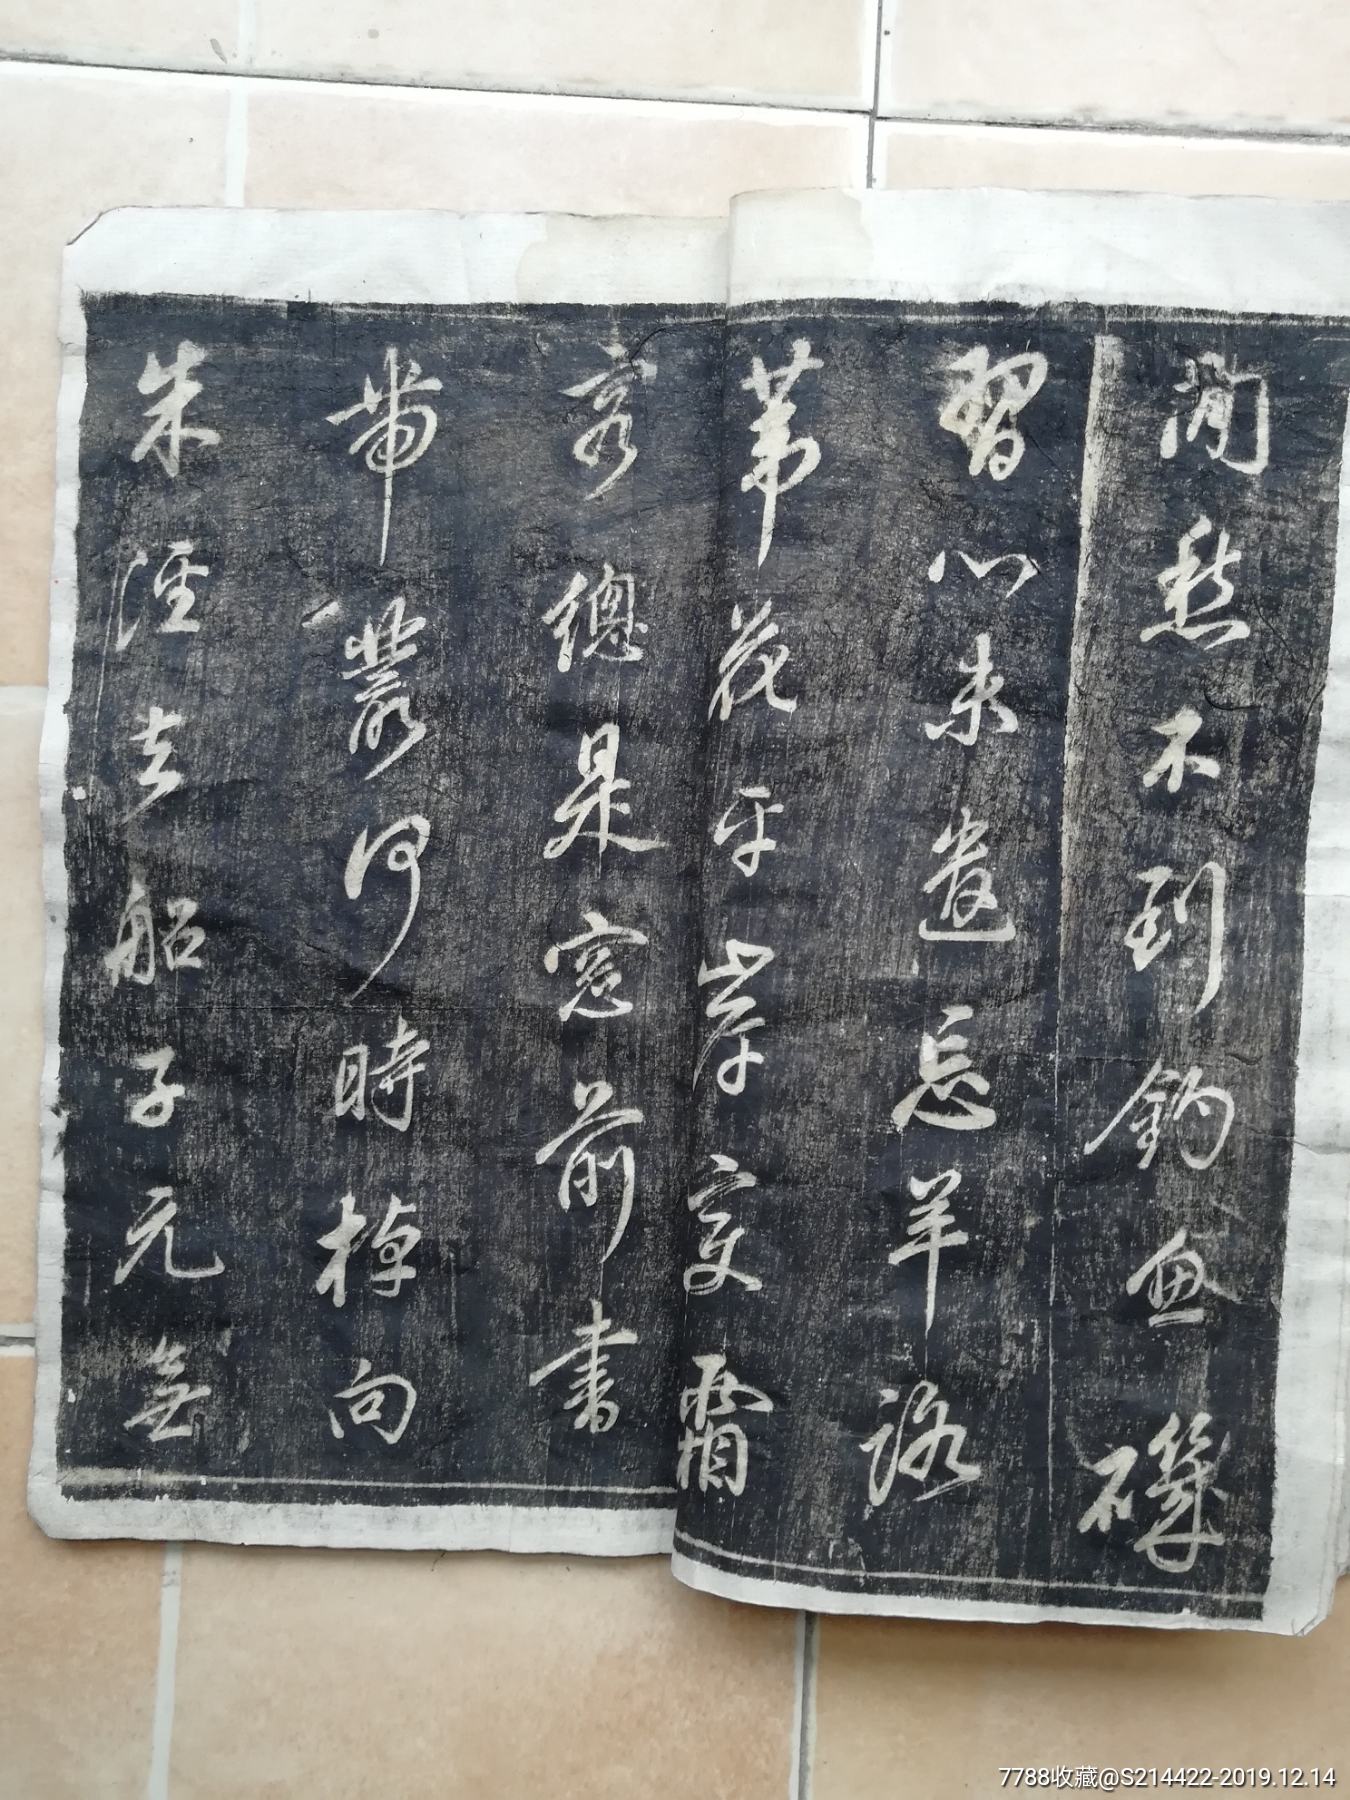 閒愁不到釣魚磯
習心未遣忘羊路
葦花平岸宜霜
客總是窓前書
帶叢何時棹向
朱涇去船子元無
7788收藏@S214422-2019.12.14